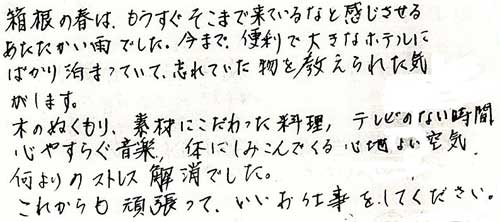 箱根の春は、もうすぐそこまで来ているなと感じさせる
あたたかい雨でした。今まで、便利で大きなホテルに
ばかり泊まっていて、忘れていた物を教えられた気
がします。
木のぬくもり、素材にこだわった料理、テレビのない時間
心やすらぐ音楽、体にしみこんでくる心地よい空気
何よりのストレス解消でした。
これからも頑張って、いいお仕事をしてください。